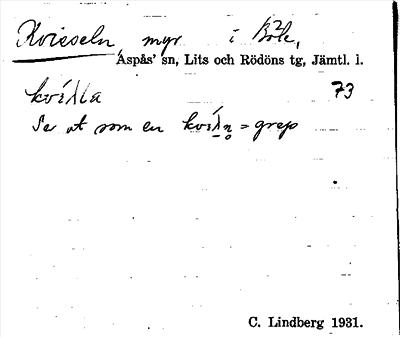 Kvisseln, myr i Böle,
Aspås' sn, Lits och Rödöns tg, Jämtl. l.
kvíʎʎa 73
Ser ut som en kvíʎn̥ = grep
C. Lindberg 1931.